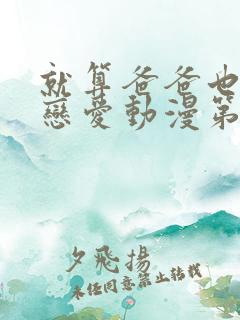 就算爸爸也
戀愛動漫第
夕飛揚
未經同意禁止轉載